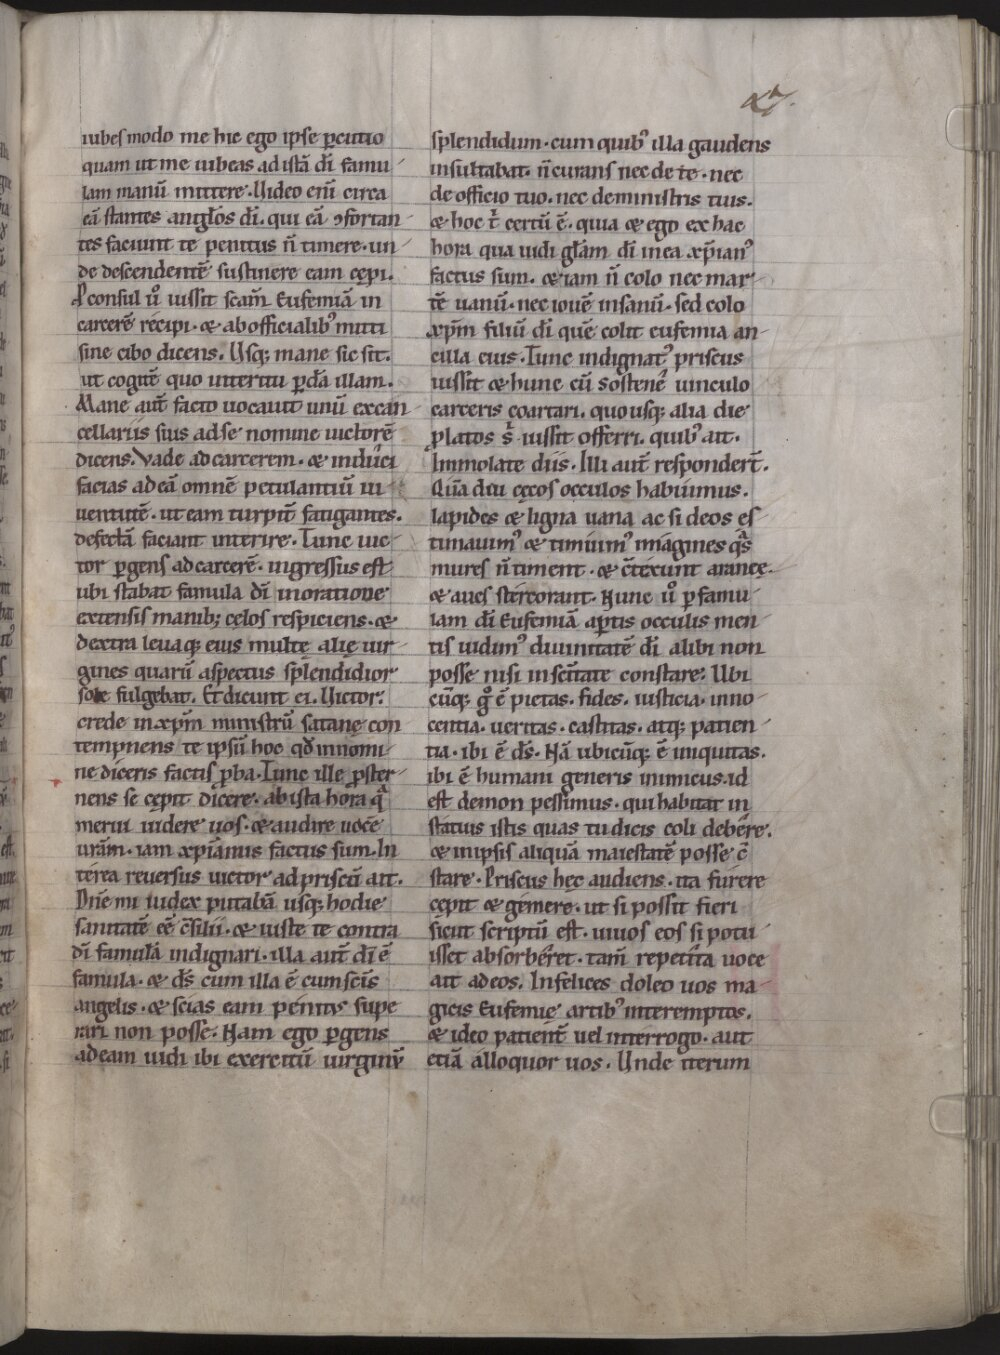 47.
iubes modo me hic ego ipse ꝑcutio
quam ut me iubeas ad istā dī famu
lam manū mittere. Uideo eni̅ circa
eā stantes angl̅os dī. qui eā ꝯfortan
tes faciunt te penitus n̄ timere. un
de descendentē sustinere eam cępi.
P̲consul ů iussit scam̄ Eufemiā in
carcerē recipi. & ab officialibꝰ mitti
sine cibo dicens. Usq; mane sic sit.
ut cogitē quo interitu ꝑdā illam.
Mane aut̄ facto uocauit unū ex can
cellariis suis ad se nomine uictorē
dicens. Vade ad carcerem. & induci
facias ad eā omnē petulantiū iu
uentutē. ut eam turpit̄ fatigantes.
defectā faciant interire. Tunc uic
tor ꝑgens ad carcerē. ingressus est
ubi stabat famula dī in oratione
extensis manib; cęlos respiciens. &
dextra leuaq; eius multę alię uir
gines quarū aspectus splendidior
sole fulgebat. Et dicunt ei. Uictor.
crede in xp̄m ministrū satanę con
tempnens te ipsū hoc qd̄ in nomi
ne diceris factis ꝓba. Tunc ille ꝓster
nens se cępit dicere. ab ista hora qᵃ
merui uidere uos. & audire uocē
urām. iam xp̄ianus factus sum. In
terea reuersus uictor ad priscū ait.
Dn̄e mi iudex putabā usq; hodie
sanitatē eē c̄silii. & iuste te contra
dī famulā indignari. illa aut̄ dī ē
famula. & ds̄ cum illa ē cum scīs
angelis. & scias eam penitꝰ supe
rari non posse. Nam ego ꝑgens
ad eam uidi ibi exercitū uirginū
splendidum. cum quibꝰ illa gaudens
insultabat. n̄ curans nec de te. nec
de officio tuo. nec de ministris tuis.
& hoc t̄ certū ē. quia & ego ex hac
hora qua uidi gl̅am dī mea xp̄ianꝰ
factus sum. & iam n̄ colo nec mar
tē uanū. nec iouē insanū. sed colo
xp̄m filiū dī quē colit eufemia an
cilla eius. Tunc indignatꝰ priscus
iussit & hunc cū sostenē uinculo
carceris coartari. quo usq; alia die
ꝓlatos s̄ iussit offerri. quibꝰ ait.
Immolate diis. Illi aut̄ respondert̄.
Quādiu cęcos occulos habuimus.
lapides & ligna uana ac si deos es
timauimꝰ & timuimꝰ imagines qᵃs
mures n̄ timent. & c̄texunt aranee.
& aues stercorant. Nunc ů ꝑ famu
lam dī Eufemiā aꝑtis occulis men
tis uidimꝰ diuinitatē dī alibi non
posse nisi in scītate constare. Ubi
cūq; gͦ ē pietas. fides. iusticia. inno
centia. ueritas. castitas. atq; patien
tia. ibi ē ds̄. Nā ubicūq; ē iniquitas.
ibi ē humani generis inimicus. id
est demon pessimus. qui habitat in
statuis istis quas tu dicis coli debere.
& in ipsis aliquā maiestatē posse c̄
stare. Priscus hęc audiens. ita furere
cępit & gemere. ut si possit fieri
sicut scriptū est. uiuos eos si potu
isset absorberet. tam̄ repetita uoce
ait ad eos. Infelices doleo uos ma
gicis Eufemię artibꝰ interemptos.
& ideo patient̄ uel interrogo. aut
etiā alloquor uos. Unde iterum